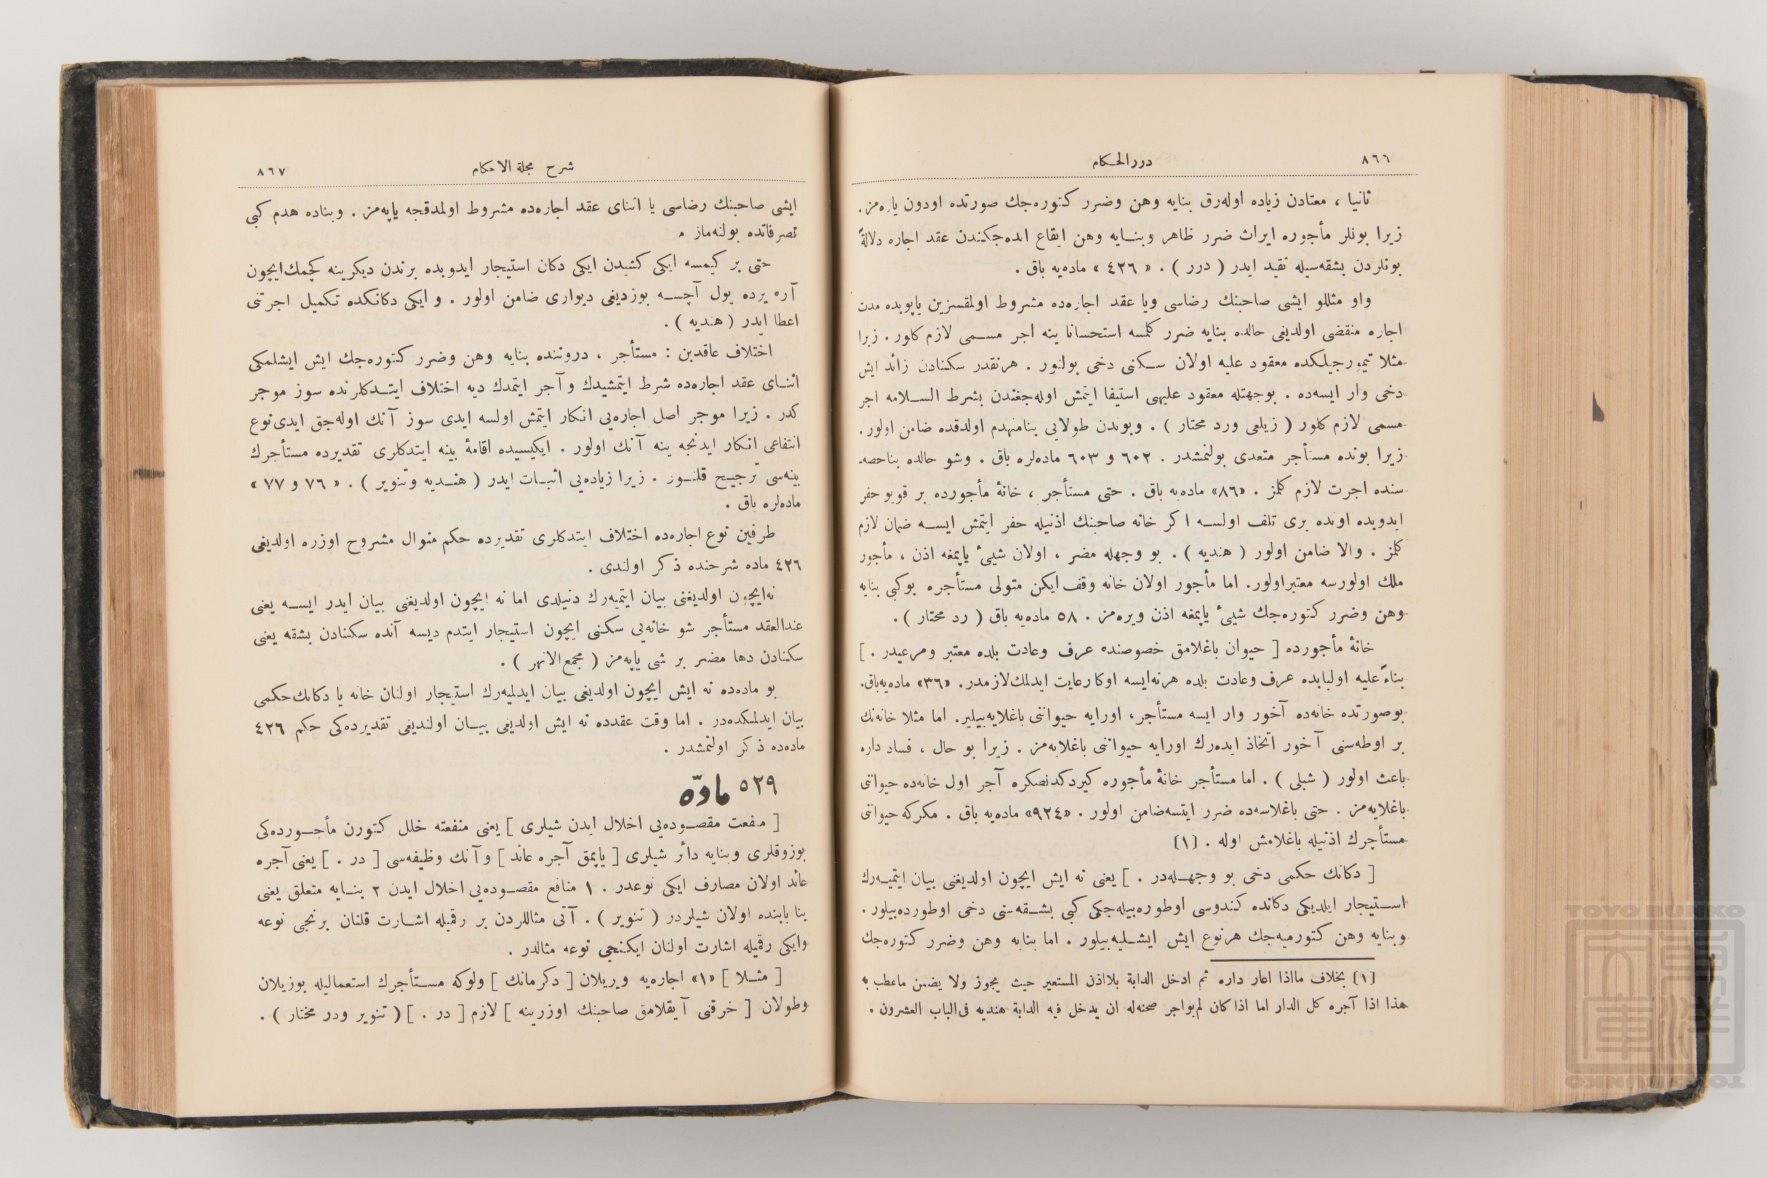 ٨٦٦
درر الحكام
ثانيا ، معتادن زياده اوله‌رق بنايه وهن وضرر كتوره‌جك صورتده اودون ياره‌مز.
زيرا بونلر مأجوره ايراث ضرر ظاهر وبنـايه وهن ايقاع ايده‌جكندن عقد اجاره دلالةً
بونلردن بشقه‌سيله تقيد ايدر ( درر ) . « ٤٢٦ » ماده‌يه باق .
واو مثللو ايشى صاحبنك رضاسى ويا عقد اجاره‌ده مشروط اولمقسزين ياپوبده مدت
اجاره منقضى اولديغى حالده بنايه ضرر كلمسه استحسانا ينه اجر مســمى لازم كلور . زيرا
مثلا تيمورجيلكده معقود عليه اولان سـكنى دخى بولنور . هرنقدر سكنادن زائد ايش
دخى وار ايسه‌ده . بوجهتله معقود عليهى استيفا ايتمش اوله‌جغندن بشرط الســلامه اجر
مسمى لازم كلور ( زيلعى ورد محتار ) . وبوندن طولايى بنا منهدم اولدقده ضامن اولور.
زيرا بونده مستأجر متعدى بولنمشدر . ٦٠٢ و ٦٠٣ ماده‌لره باق . وشو حالده بنا حصه‌
سنده اجرت لازم كلمز . «٨٦» ماده‌يه باق . حتى مستأجر ، خانۀ مأجورده بر قويو حفر
ايدوبده اونده برى تلف اولسـه اكر خانه صاحبنك اذنيله حفر ايتمش ايســه ضمان لازم
كلمز . والا ضامن اولور ( هنديه ) . بو وجهله مضر ، اولان شيئ ياپمغه اذن ، مأجور
ملك اولورسه معتبراولور. اما مأجور اولان خانه وقف‌ايكن متولى مستأجره بوكبى بنايه
وهن وضرر كتوره‌جك شيئ ياپمغه اذن ويره‌مز . ٥٨ ماده‌يه باق ( رد محتار ) .
خانۀ مأجورده [ حيوان باغلامق خصوصنده عرف وعادت بلده معتبر ومرعيدر . ]
بناءً عليه اولبابده عرف وعادت بلده هرنه‌ايسه اوكا رعايت ايدلمك‌لازمدر. «٣٦» ماده‌يه‌باق.
بوصورتده خانه‌ده آخور وار ايسه مستأجر، اورايه حيواننى باغلايه‌بيلير. اما مثلا خانه‌نك
بر اوطه‌سنى آخور اتخاذ ايده‌رك اورايه حيواننى باغلايه‌مز . زيرا بو حال ، فساد داره
باعث اولور ( شبلى ) . اما مستأجر خانۀ مأجوره كيردكدنصكره آجر اول خانه‌ده حيواننى
باغلايه‌مز . حتى باغلاسه‌ده ضرر ايتسه‌ضامن اولور . «٩٢٤» ماده‌يه باق . مكركه حيواننى
مستأجرك اذنيله باغلامش اوله . (١)
[ دكانك حكمى دخى بو وجهــله‌در . ] يعنى نه ايش ايچون اولديغنى بيان ايتميـه‌رك
اسـتيجار ايلديكى دكانده كندوسى اوطوره‌بيله‌جكى كبى بشـقه‌سنى دخى اوطورده‌بيلور.
وبنايه وهن كتورميه‌جك هرنوع ايش ايشـليه‌بيلور . اما بنايه وهن وضرر كتوره‌جك
(١) بخلاف مااذا اعار داره ثم ادخل الدابة بلااذن المستعير حيث يجوز ولا يضمن ماعطب به
هذا اذا آجره كل الدار اما اذا كان لم‌يؤاجر صحنه‌له ان يدخل فيه الدابة هنديه فى‌الباب العشرون .
شرح مجلة الاحكام
٨٦٧
ايشى صاحبنك رضاسى يا اثناى عقد اجاره‌ده مشروط اولمدقجه ياپه‌مز . وبناده هدم كبى
تصرفاتده بولنه‌ماز .
حتى بر كيمسه ايكى كشيدن ايكى دكان استيجار ايدوبده برندن ديكرينه كچمك‌ايچون
آره يرده يول آچســه بوزديغى ديوارى ضامن اولور . و ايكى دكانكده تكميل اجرتنى
اعطا ايدر ( هنديه ) .
اختلاف عاقدين : مستأجر ، دروننده بنايه وهن وضرر كتوره‌جك ايش ايشلمكى
اثنـاى عقد اجاره‌ده شرط ايتمشيدك و آجر ايتمدك ديه اختلاف ايتــدكلرنده سوز موجر
كدر . زيرا موجر اصل اجاره‌يى انكار ايتمش اولسه ايدى سوز آنك اوله‌جق ايدى‌نوع
انتفاعى انكار ايدنجه ينه آنك اولور . ايكيسيده اقامۀ بينه ايتدكلرى تقديرده مستأجرك
بينه‌سى ترجيح قلنـور . زيرا زياده‌يى اثبـات ايدر ( هنـديه وتنوير ) . « ٧٦ و ٧٧ »
ماده‌لره باق .
طرفين نوع اجاره‌ده اختلاف ايتدكلرى تقديرده حكم منوال مشروح اوزره اولديغى
٤٢٦ ماده شرحنده ذكر اولندى .
نه‌ايچون اولديغنى بيان ايتميه‌رك دنيلدى اما نه ايچون اولديغنى بيان ايدر ايســه يعنى
عندالعقد مستأجر شو خانه‌يى سكنى ايچون استيجار ايتدم ديسه آنده سكنادن بشقه يعنى
سكنادن دها مضر بر شى ياپه‌مز ( مجمع‌الانهر ) .
بو ماده‌ده نه ايش ايچون اولديغى بيان ايدلميه‌رك استيجار اولنان خانه يا دكانك‌حكمى
بيان ايدلمكده‌در . اما وقت عقدده نه ايش اولديغى بيــان اولنديغى تقديرده‌كى حكم ٤٢٦
ماده‌ده ذكر اولنمشدر .
٥٢٩ مادّه
[ منفعت مقصـوده‌يى اخلال ايدن شيلرى ] يعنى منفعته خلل كتورن مأجــورده‌كى
بوزوقلرى وبنايه دائر شيلرى [ ياپمق آجره عائد ] و آنك وظيفه‌سى [ در . ] يعنى آجره
عائد اولان مصارف ايكى نوعدر . ١ منافع مقصــوده‌يى اخلال ايدن ٢ بنــايه متعلق يعنى
بنا بابنده اولان شيلردر ( تنوير ) . آتى مثاللردن بر رقميله اشـارت قلنان برنجى نوعه
وايكى رقميله اشارت اولنان ايكنجى نوعه مثالدر .
[ مثــلا ] «١» اجاره‌يه ويريلان [ دكرمانك ] ولوكه مســتأجرك استعماليله بوزيلان
وطولان [ خرقنى آيقلامق صاحبنك اوزرينه ] لازم [ در . ] ( تنوير ودر مختار ) .
TOYO BUNKO